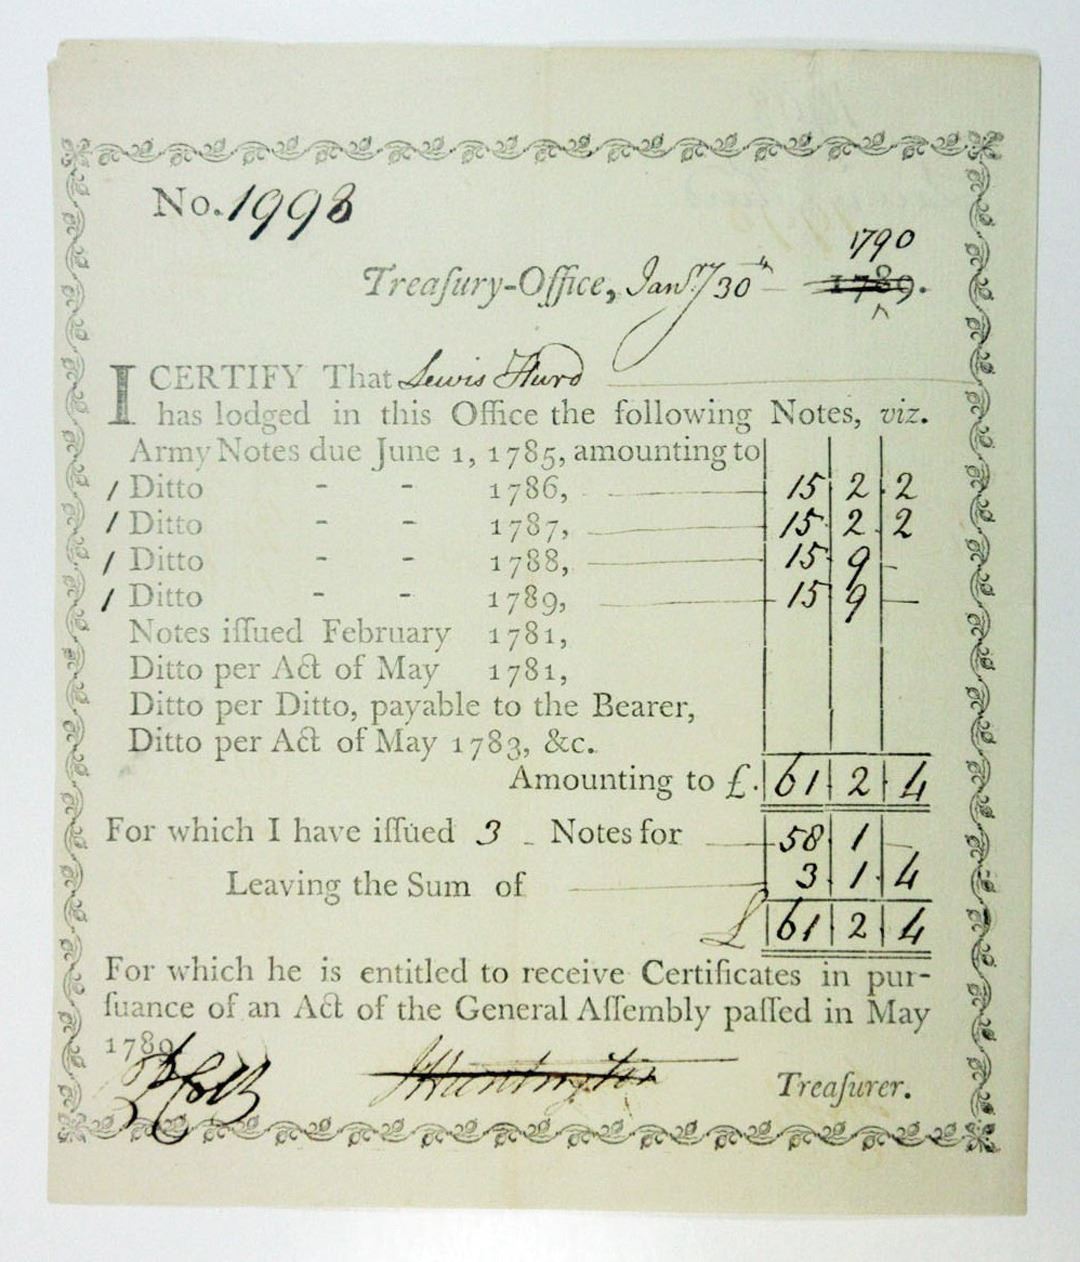 No. 1998
1790
Treaſury-Office, Jany 30th 1789.
I CERTIFY That Lewis Hurd
has lodged in this Office the following Notes, viz.
Army Notes due June 1, 1785, amounting to
/ Ditto - - 1786, 15 2 2
/ Ditto - - 1787, 15 2 2
/ Ditto - - 1788, 15 9 -
/ Ditto - - 1789, 15 9 -
Notes iſſued February 1781,
Ditto per Act of May 1781,
Ditto per Ditto, payable to the Bearer,
Ditto per Act of May 1783, &c.
Amounting to £. 61 2 4
For which I have iſſued 3 - Notes for 58 1 -
Leaving the Sum of 3 1 4
£ 61 2 4
For which he is entitled to receive Certificates in pur-
ſuance of an Act of the General Aſſembly paſſed in May
1789.
J Huntington Treaſurer.